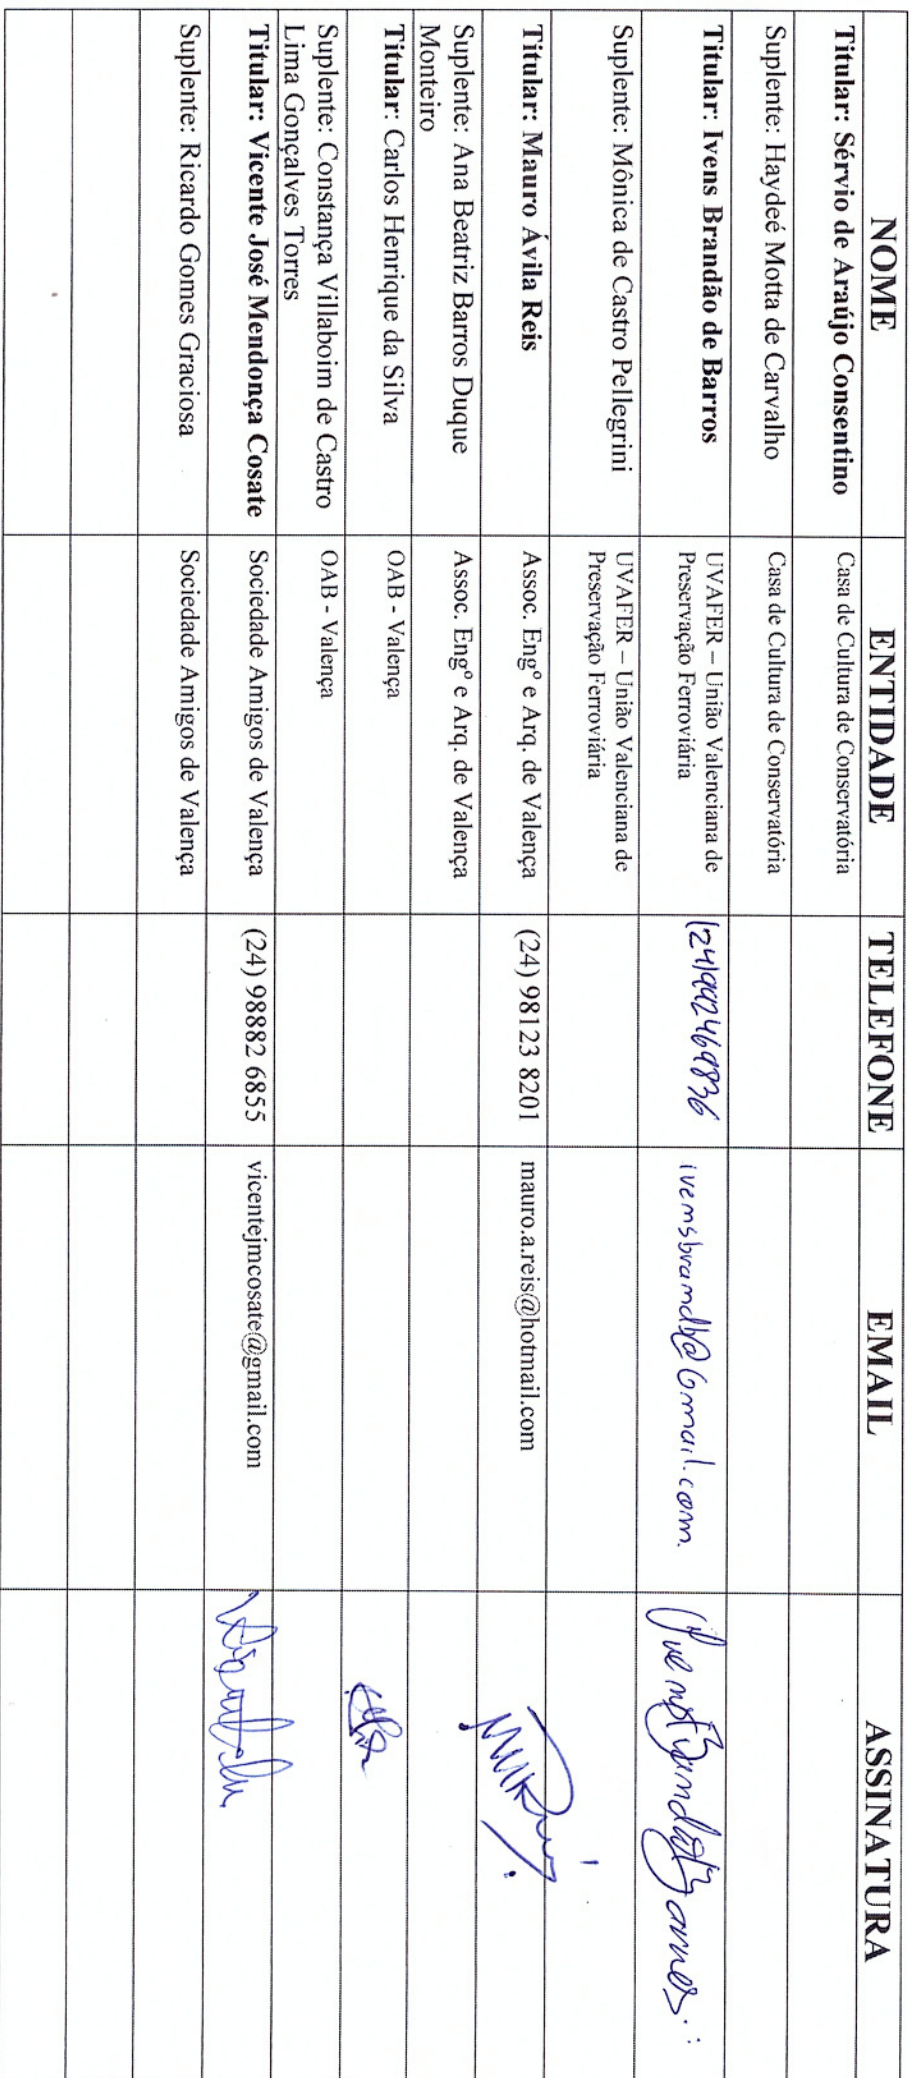 NOME ENTIDADE TELEFONE EMAIL ASSINATURA
Titular: Sérvio de Araújo Consentino Casa de Cultura de Conservatória
Suplente: Haydeé Motta de Carvalho Casa de Cultura de Conservatória
Titular: Ivens Brandão de Barros UVAFER – União Valenciana de (24)992469836 ivensbrandb@Gmail.com
Preservação Ferroviária
Suplente: Mônica de Castro Pellegrini UVAFER – União Valenciana de
Preservação Ferroviária
Titular: Mauro Ávila Reis Assoc. Engº e Arq. de Valença (24) 98123 8201 mauro.a.reis@hotmail.com
Suplente: Ana Beatriz Barros Duque Assoc. Engº e Arq. de Valença
Monteiro
Titular: Carlos Henrique da Silva OAB - Valença
Suplente: Constança Villaboim de Castro OAB - Valença
Lima Gonçalves Torres
Titular: Vicente José Mendonça Cosate Sociedade Amigos de Valença (24) 98882 6855 vicentejmcosate@gmail.com
Suplente: Ricardo Gomes Graciosa Sociedade Amigos de Valença